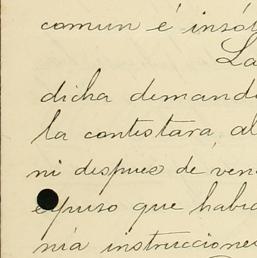 comun é insól
La
dicha demanda
la contestara, al
ni despues de ven
expuso que habia
nia instruccione